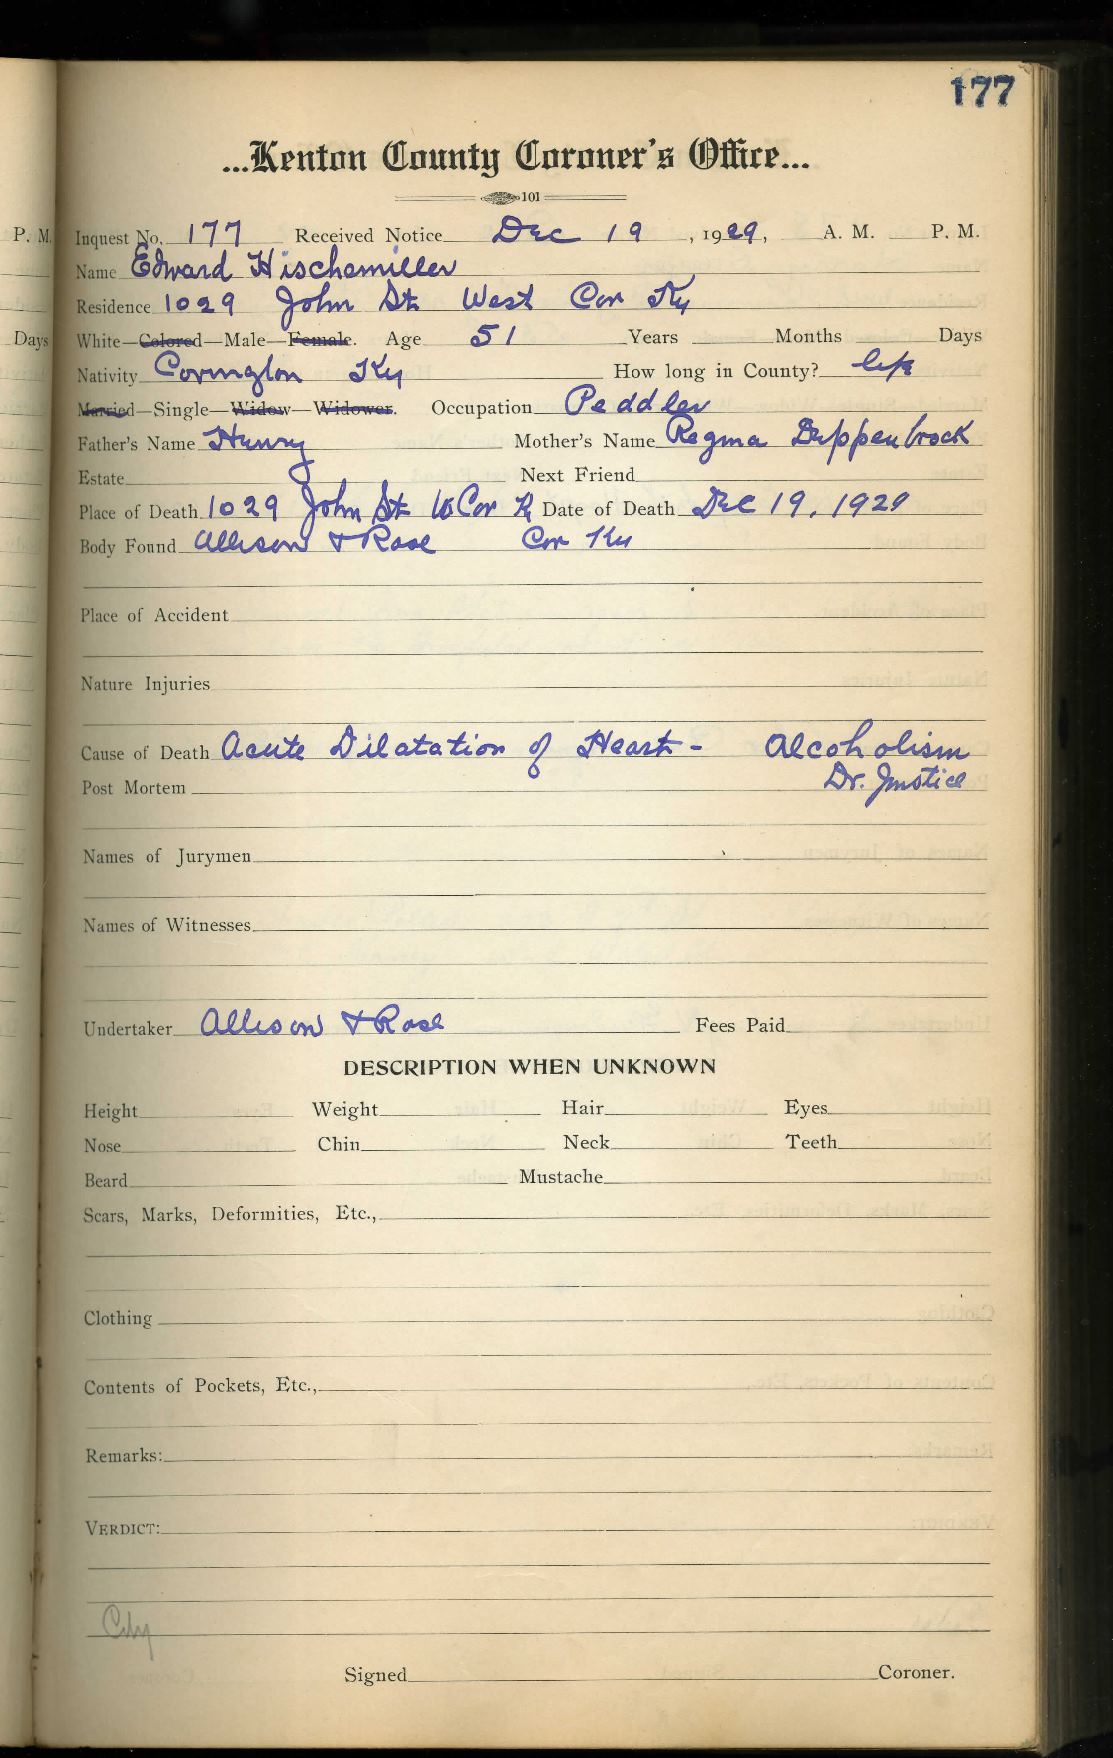 177
...Kenton County Coroner's Office...
101
P. M.
Inquest No. 177 Received Notice Dec 19, 1929, A. M. P. M.
Name Edward Hischemiller
Residence 1029 John St West Cov Ky
Days
White—Colored—Male—Female. Age 51 Years Months Days
Nativity Covington Ky How long in County? life
Married—Single—Widow—Widower. Occupation Peddler
Father's Name Henry Mother's Name Regina Duppenbrock
Estate Next Friend
Place of Death 1029 John St W Cov K Date of Death Dec 19, 1929
Body Found Allison & Rose Cov Ky
Place of Accident
Nature Injuries
Cause of Death Acute Dilatation of Heart - Alcoholism
Post Mortem Dr. Justice
Names of Jurymen
Names of Witnesses
Undertaker Allison & Rose Fees Paid
DESCRIPTION WHEN UNKNOWN
Height Weight Hair Eyes
Nose Chin Neck Teeth
Beard Mustache
Scars, Marks, Deformities, Etc.,
Clothing
Contents of Pockets, Etc.,
Remarks:
VERDICT:
City
Signed Coroner.